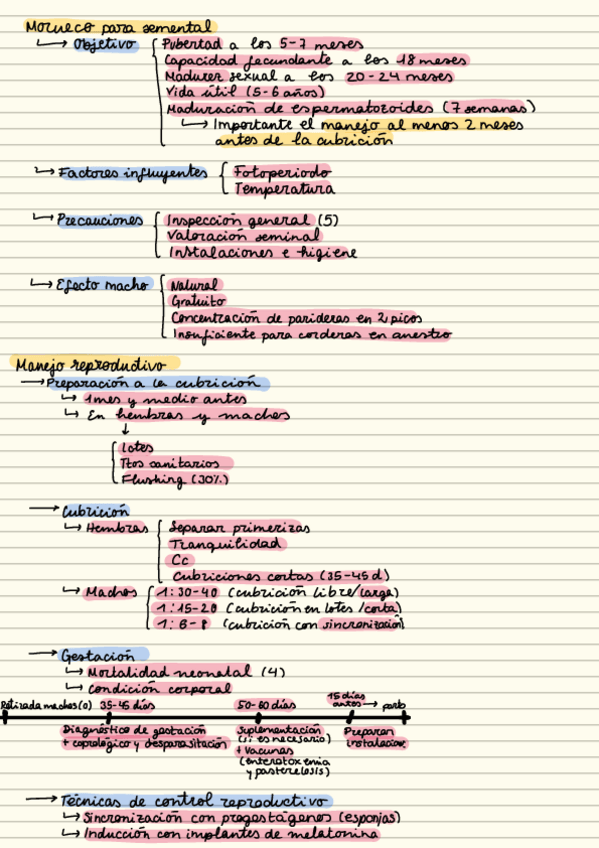 Morueco para semental
↳ Objetivo { Pubertad a los 5-7 meses
Capacidad fecundante a los 18 meses
Madurez sexual a los 20-24 meses
Vida útil (5-6 años)
Maduración de espermatozoides (7 semanas)
↳ Importante el manejo al menos 2 meses
antes de la cubrición
↳ Factores influyentes { Fotoperiodo
Temperatura
↳ Precauciones { Inspección general (5)
Valoración seminal
Instalaciones e higiene
↳ Efecto macho { Natural
Gratuito
Concentración de parideras en 2 picos
Insuficiente para corderas en anestro
Manejo reproductivo
→ Preparación a la cubrición
↳ 1mes y medio antes
↳ En hembras y machos
↓
{ Lotes
Ttos sanitarios
Flushing (30%)
→ Cubrición
↳ Hembras { Separar primerizas
Tranquilidad
Cc
Cubriciones cortas (35-45 d)
↳ Machos { 1:30-40 (cubrición libre/larga)
1:15-20 (cubrición en lotes/corta)
1:6-8 (cubrición con sincronización)
→ Gestación
↳ Mortalidad neonatal (4)
↳ Condición corporal
Retirada machos (0) 35-45 días 50-60 días 15 días antes → parto
Diagnóstico de gestación
+ coprológico y desparasitación
Suplementación
(si es necesario)
+ Vacunas
(enterotoxemia
y pasterelosis)
Preparar
instalacion
→ Técnicas de control reproductivo
↳ Sincronización con progestágenos (esponjas)
↳ Inducción con implantes de melatonina